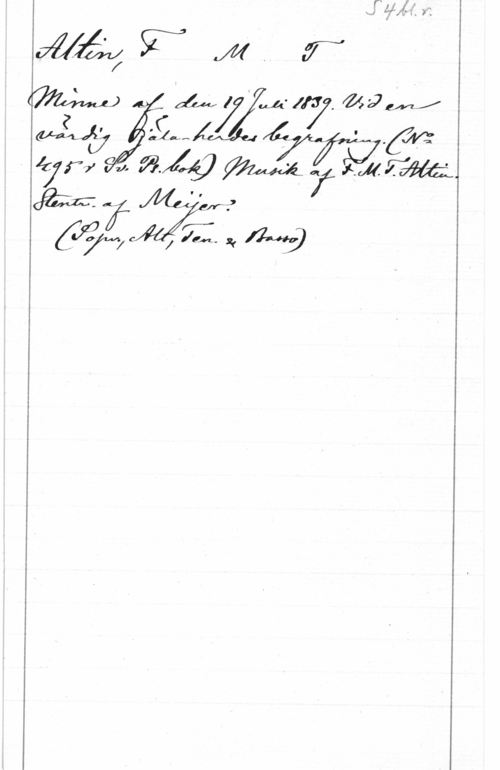 S 4 bl. r.
Altin, F M T
Minne af den 19 Juli 1839. Vid en
värdig Själa-herdes begrafning. (No
495 i Sv. Ps. bok) Musik af F. M. T. Altin.
Stentr. af Meijer.
(Sopr, Alt, Ten. & Basso)